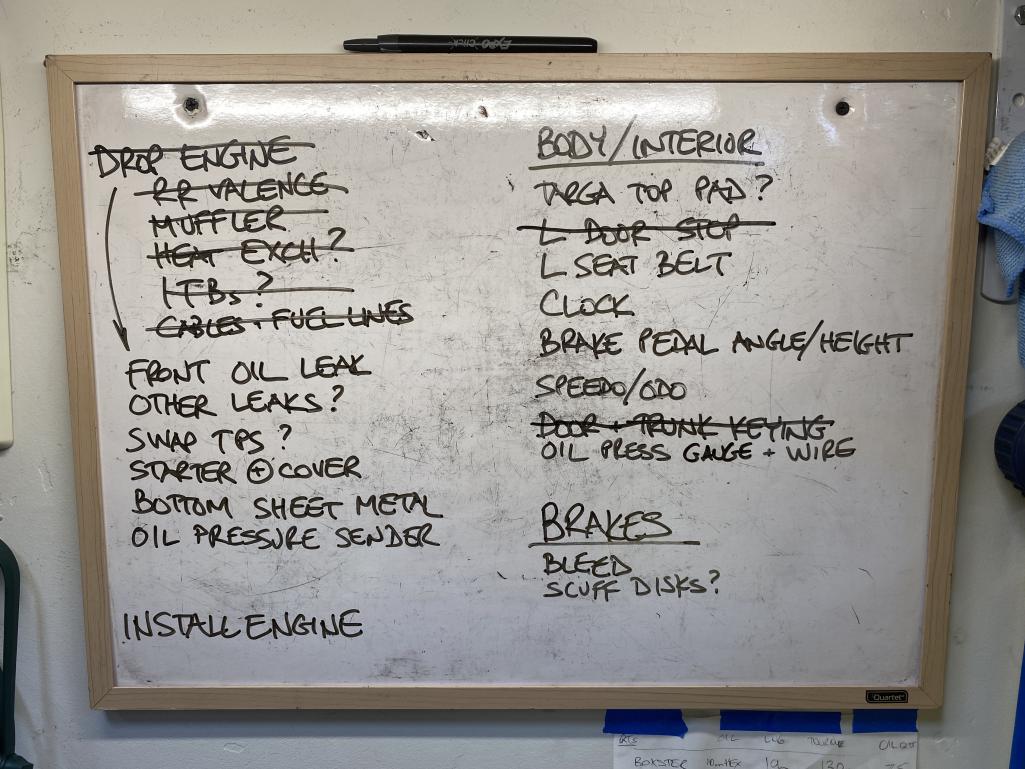 EXPO CLICK
DROP ENGINE
RR VALENCE
MUFFLER
HEAT EXCH?
ITBs?
CABLES + FUEL LINES
FRONT OIL LEAK
OTHER LEAKS?
SWAP TPS?
STARTER ⊕ COVER
BOTTOM SHEET METAL
OIL PRESSURE SENDER
INSTALL ENGINE
BODY/INTERIOR
TARGA TOP PAD?
L DOOR STOP
L SEAT BELT
CLOCK
BRAKE PEDAL ANGLE/HEIGHT
SPEEDO/ODO
DOOR + TRUNK KEYING
OIL PRESS GAUGE + WIRE
BRAKES
BLEED
SCUFF DISKS?
Quartet
OIL LUG TORQUE OIL QTY
BOXSTER 10mm HEX 19m 130